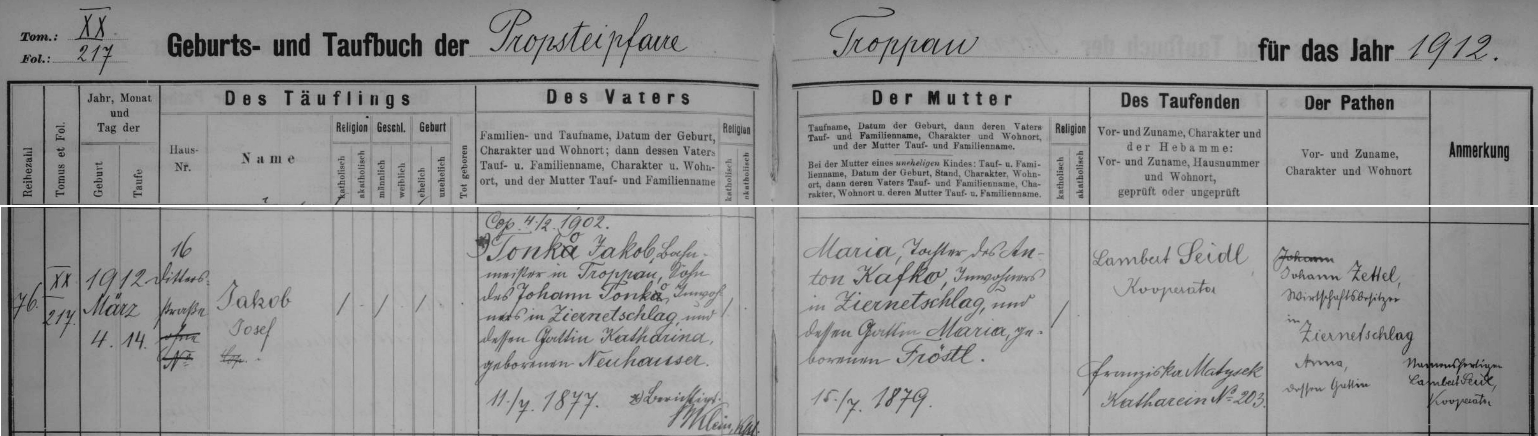 Tom.: XX.
Fol.: 217
Geburts- und Taufbuch der Propsteipfarre Troppau für das Jahr 1912.
Reihezahl
Tomus et Fol.
Jahr, Monat
und
Tag der
Geburt
Taufe
Des Täuflings
Haus-
Nr.
Name
Religion
katholisch
akatholisch
Geschl.
männlich
weiblich
Geburt
ehelich
unehelich
Tot geboren
Des Vaters
Familien- und Taufname, Datum der Geburt,
Charakter und Wohnort; dann dessen Vaters
Tauf- u. Familienname, Charakter u. Wohn-
ort, und der Mutter Tauf- und Familienname
Religion
katholisch
akatholisch
Der Mutter
Taufname, Datum der Geburt, dann deren Vaters
Tauf- und Familienname, Charakter und Wohnort,
und der Mutter Tauf- und Familienname.
Bei der Mutter eines uneheligen Kindes: Tauf- u. Fami-
lienname, Datum der Geburt, Stand, Charakter, Wohn-
ort, dann deren Vaters Tauf- und Familienname, Cha-
rakter, Wohnort u. deren Mutter Tauf- u. Familienname.
Religion
katholisch
akatholisch
Des Taufenden
Vor- und Zuname, Charakter und
der Hebamme:
Vor- und Zuname, Hausnummer
und Wohnort,
geprüft oder ungeprüft
Der Pathen
Vor- und Zuname,
Charakter und Wohnort
Anmerkung
76.
XX
217.
1912
März
4. 14.
16
Ditters-
straße
ohne
Nr.
Jakob
Josef
Cop. 4./2. 1902.
Tonka Jakob, Bahn-
meister in Troppau, Sohn
des Johann Tonka, Inwoh-
ners in Ziernetschlag und
dessen Gattin Katharina,
geborenen Neuhausser.
11./7. 1877.
Berichtigt
Maria, Tochter des An-
ton Kafko, Inwohners
in Ziernetschlag, und
dessen Gattin Maria, ge-
borenen Fröstl.
15./7. 1879.
Lambert Seidl,
Kooperator
Franziska Matysek
Katharein No 203.
Johann
Johann Zettel,
Wirtschaftsbesitzer
in
Ziernetschlag
Anna,
dessen Gattin
Namensfertiger
Lambert Seidl,
Kooperator